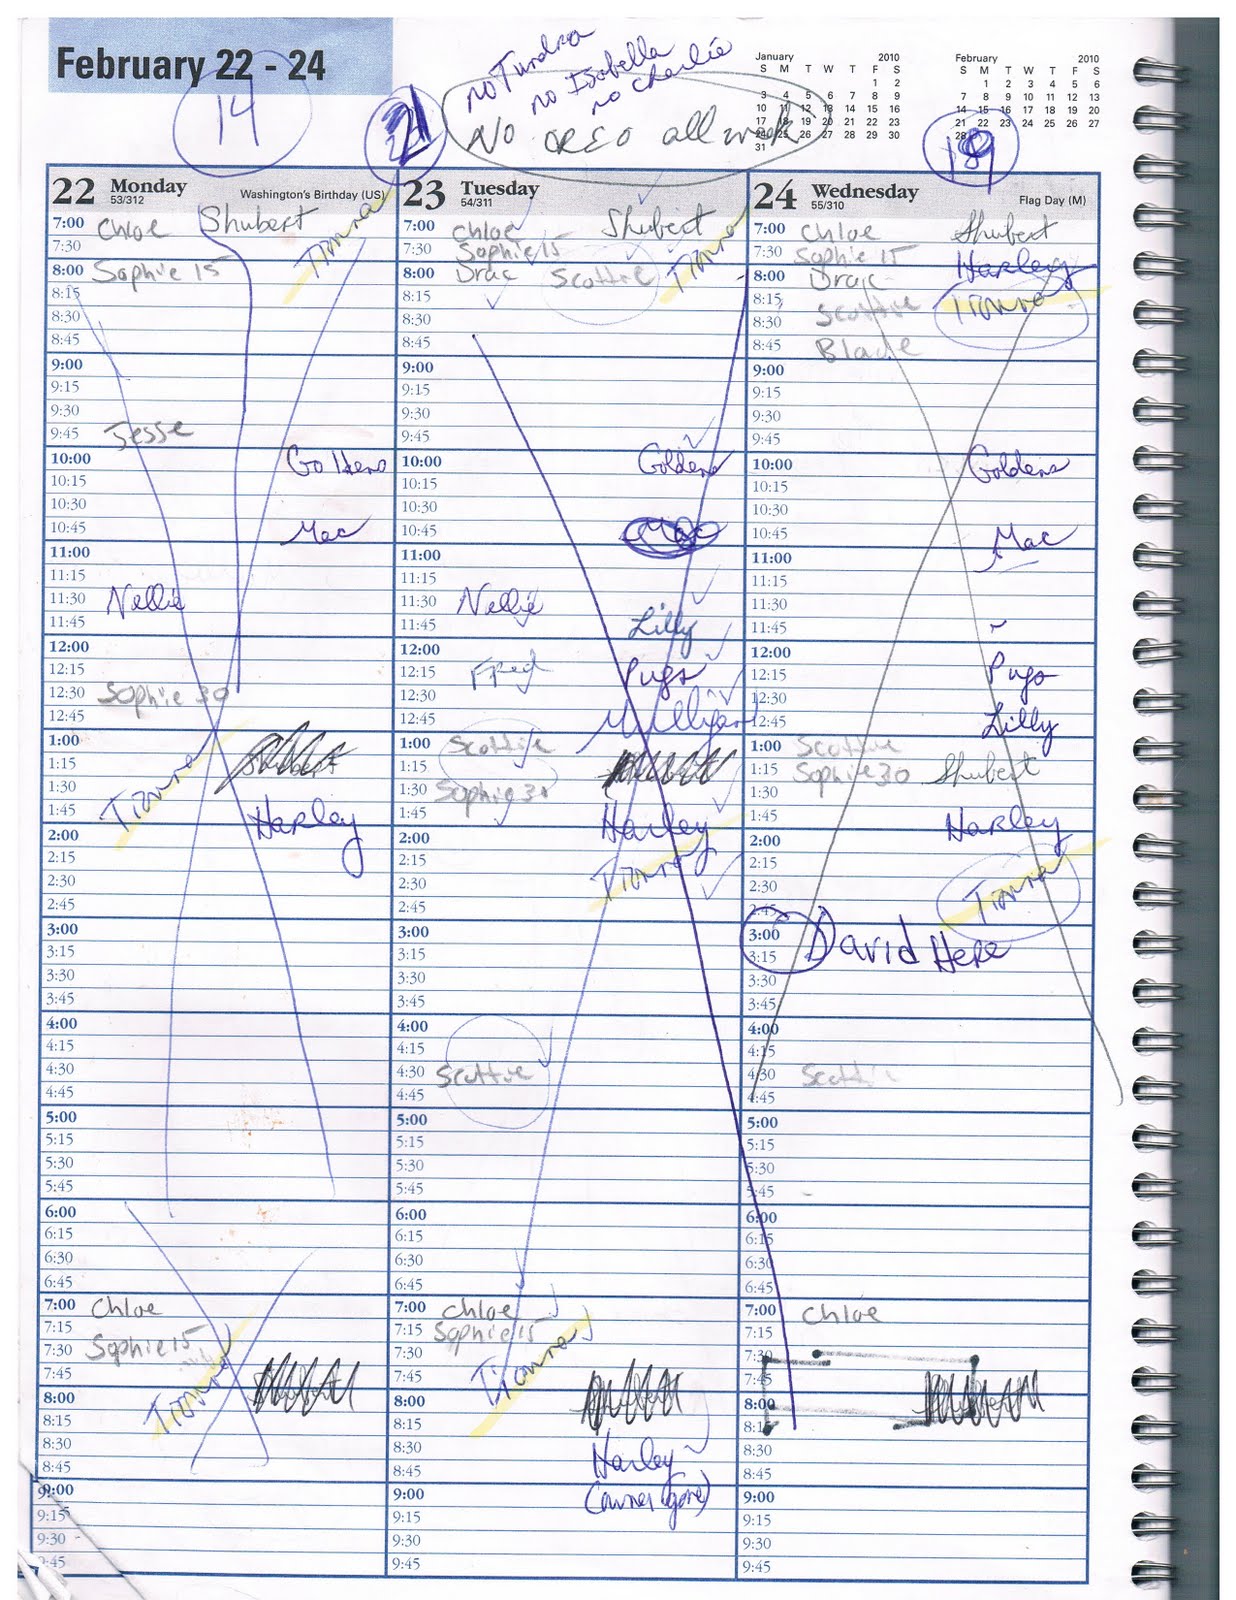 February 22 - 24
14
21
no Tundra
no Isabella
no Charlie
No OREO all week
January 2010
S M T W T F S
1 2
3 4 5 6 7 8 9
10 11 12 13 14 15 16
17 18 19 20 21 22 23
24 25 26 27 28 29 30
31
February 2010
S M T W T F S
1 2 3 4 5 6
7 8 9 10 11 12 13
14 15 16 17 18 19 20
21 22 23 24 25 26 27
28
22 Monday
53/312
Washington's Birthday (US)
7:00 Chloe Shubert
7:30
8:00 Sophie 15
8:15
8:30
8:45
9:00
9:15
9:30
9:45 Jesse
10:00 Goldens
10:15
10:30
10:45 Mac
11:00
11:15
11:30 Nellie
11:45
12:00
12:15
12:30 Sophie 30
12:45
1:00
1:15
1:30
1:45 Harley
2:00
2:15
2:30
2:45
3:00
3:15
3:30
3:45
4:00
4:15
4:30
4:45
5:00
5:15
5:30
5:45
6:00
6:15
6:30
6:45
7:00 Chloe
7:15
7:30 Sophie 15
7:45
8:00
8:15
8:30
8:45
9:00
9:15
9:30
9:45
23 Tuesday
54/311
7:00 Chloe Shubert
7:30 Sophie 15
8:00 Drac Scottie
8:15
8:30
8:45
9:00
9:15
9:30
9:45
10:00 Goldens
10:15
10:30
10:45 Mac
11:00
11:15
11:30 Nellie
11:45 Lilly
12:00
12:15 Fred Pugs
12:30
12:45 Mulligan
1:00 Scottie
1:15
1:30 Sophie 30
1:45 Harley
2:00
2:15
2:30
2:45
3:00
3:15
3:30
3:45
4:00
4:15
4:30 Scottie
4:45
5:00
5:15
5:30
5:45
6:00
6:15
6:30
6:45
7:00 Chloe
7:15 Sophie 15
7:30
7:45
8:00
8:15
8:30 Harley
8:45
9:00 (owner gone)
9:15
9:30
9:45
24 Wednesday
55/310
Flag Day (M)
7:00 Chloe Shubert
7:30 Sophie 15 Harley
8:00 Drac
8:15
8:30 Scottie
8:45 Blade
9:00
9:15
9:30
9:45
10:00 Goldens
10:15
10:30
10:45 Mac
11:00
11:15
11:30
11:45
12:00
12:15 Pugs
12:30
12:45 Lilly
1:00 Scottie
1:15 Sophie 30 Shubert
1:30
1:45 Harley
2:00
2:15
2:30
2:45
3:00 David Here
3:15
3:30
3:45
4:00
4:15
4:30 Scottie
4:45
5:00
5:15
5:30
5:45
6:00
6:15
6:30
6:45
7:00 Chloe
7:15
7:30
7:45
8:00
8:15
8:30
8:45
9:00
9:15
9:30
9:45